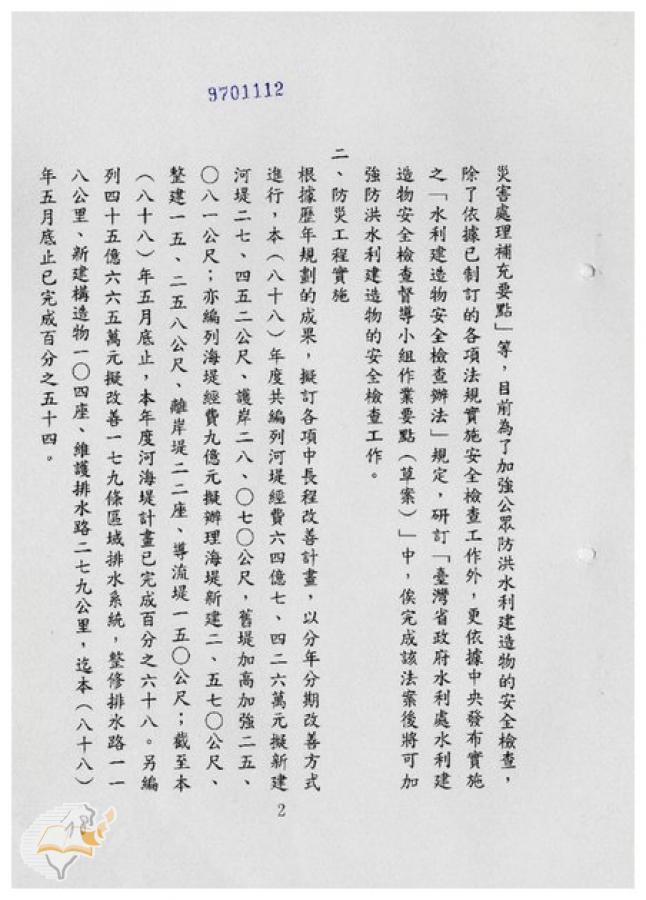 9701112
災害處理補充要點」等，目前為了加強公眾防洪水利建造物的安全檢查，
除了依據已制訂的各項法規實施安全檢查工作外，更依據中央發布實施
之「水利建造物安全檢查辦法」規定，研訂「臺灣省政府水利處水利建
造物安全檢查督導小組作業要點（草案）」中，俟完成該法案後將可加
強防洪水利建造物的安全檢查工作。
二、防災工程實施
根據歷年規劃的成果，擬訂各項中長程改善計畫，以分年分期改善方式
進行，本（八十八）年度共編列河堤經費六四億七、四二六萬元擬新建
河堤二七、四五二公尺、護岸二八、〇七〇公尺，舊堤加高加強二五、
〇八一公尺；亦編列海堤經費九億元擬辦理海堤新建二、五七〇公尺、
整建一五、二五八公尺、離岸堤二二座、導流堤一五〇公尺；截至本
（八十八）年五月底止，本年度河海堤計畫已完成百分之六十八。另編
列四十五億六六五萬元擬改善一七九條區域排水系統，整修排水路一一
八公里、新建構造物一〇四座、維護排水路二七九公里，迄本（八十八）
年五月底止已完成百分之五十四。
2